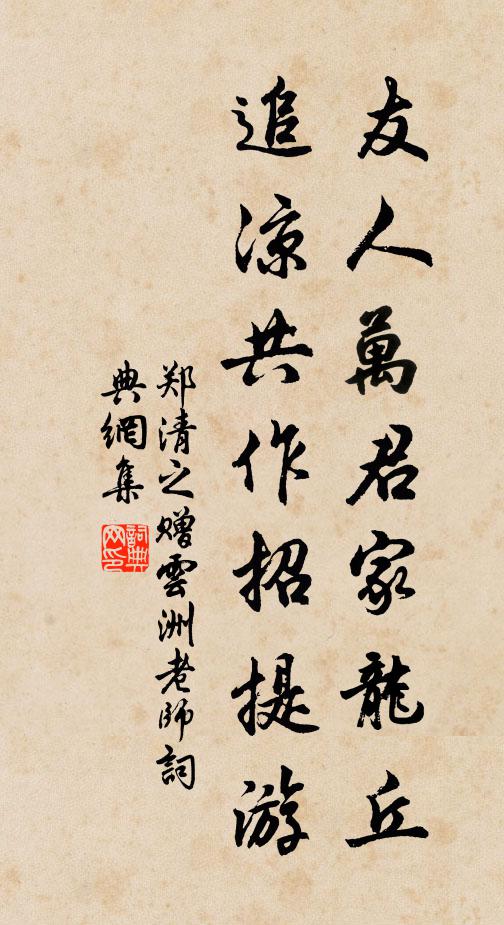 友人萬君家龍丘
追涼共作招提游
郑清之赠雲洲老師詞
典網集
詞典網印